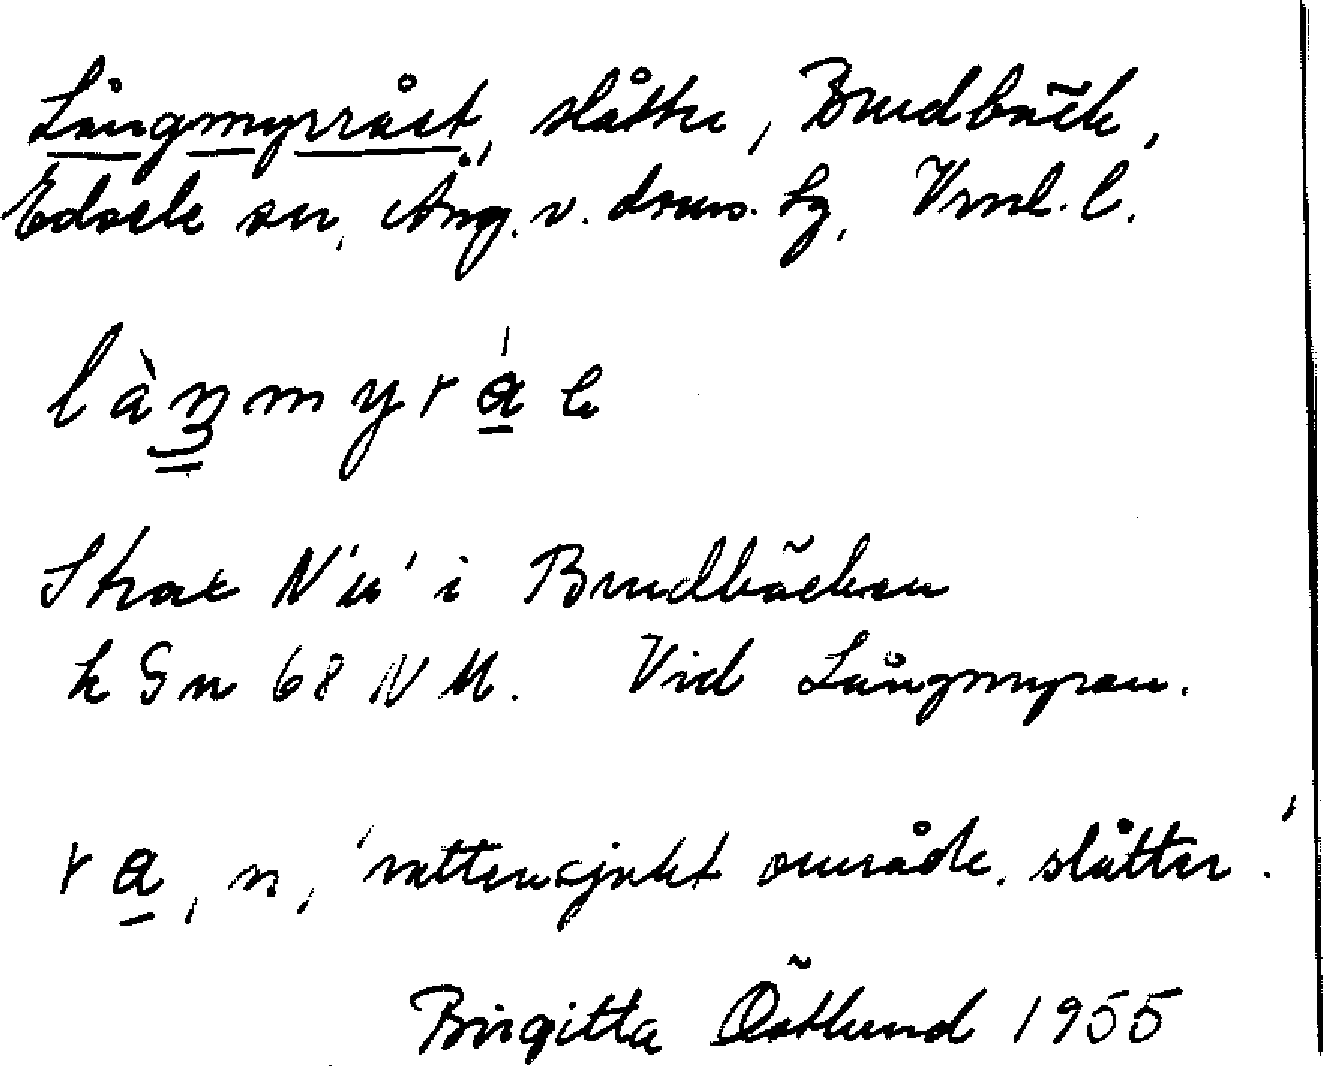 Långmyrrået, slåtter, Brudbäck,
Edsele sn, Ång. v. doms. tg, Vrnl. l.
Strax N'n' i Brudbäcken
k Gn 68 N M. Vid Långmyran.
ra, n, 'vattensjukt område. slåtter.'
Birgitta Östlund 1955